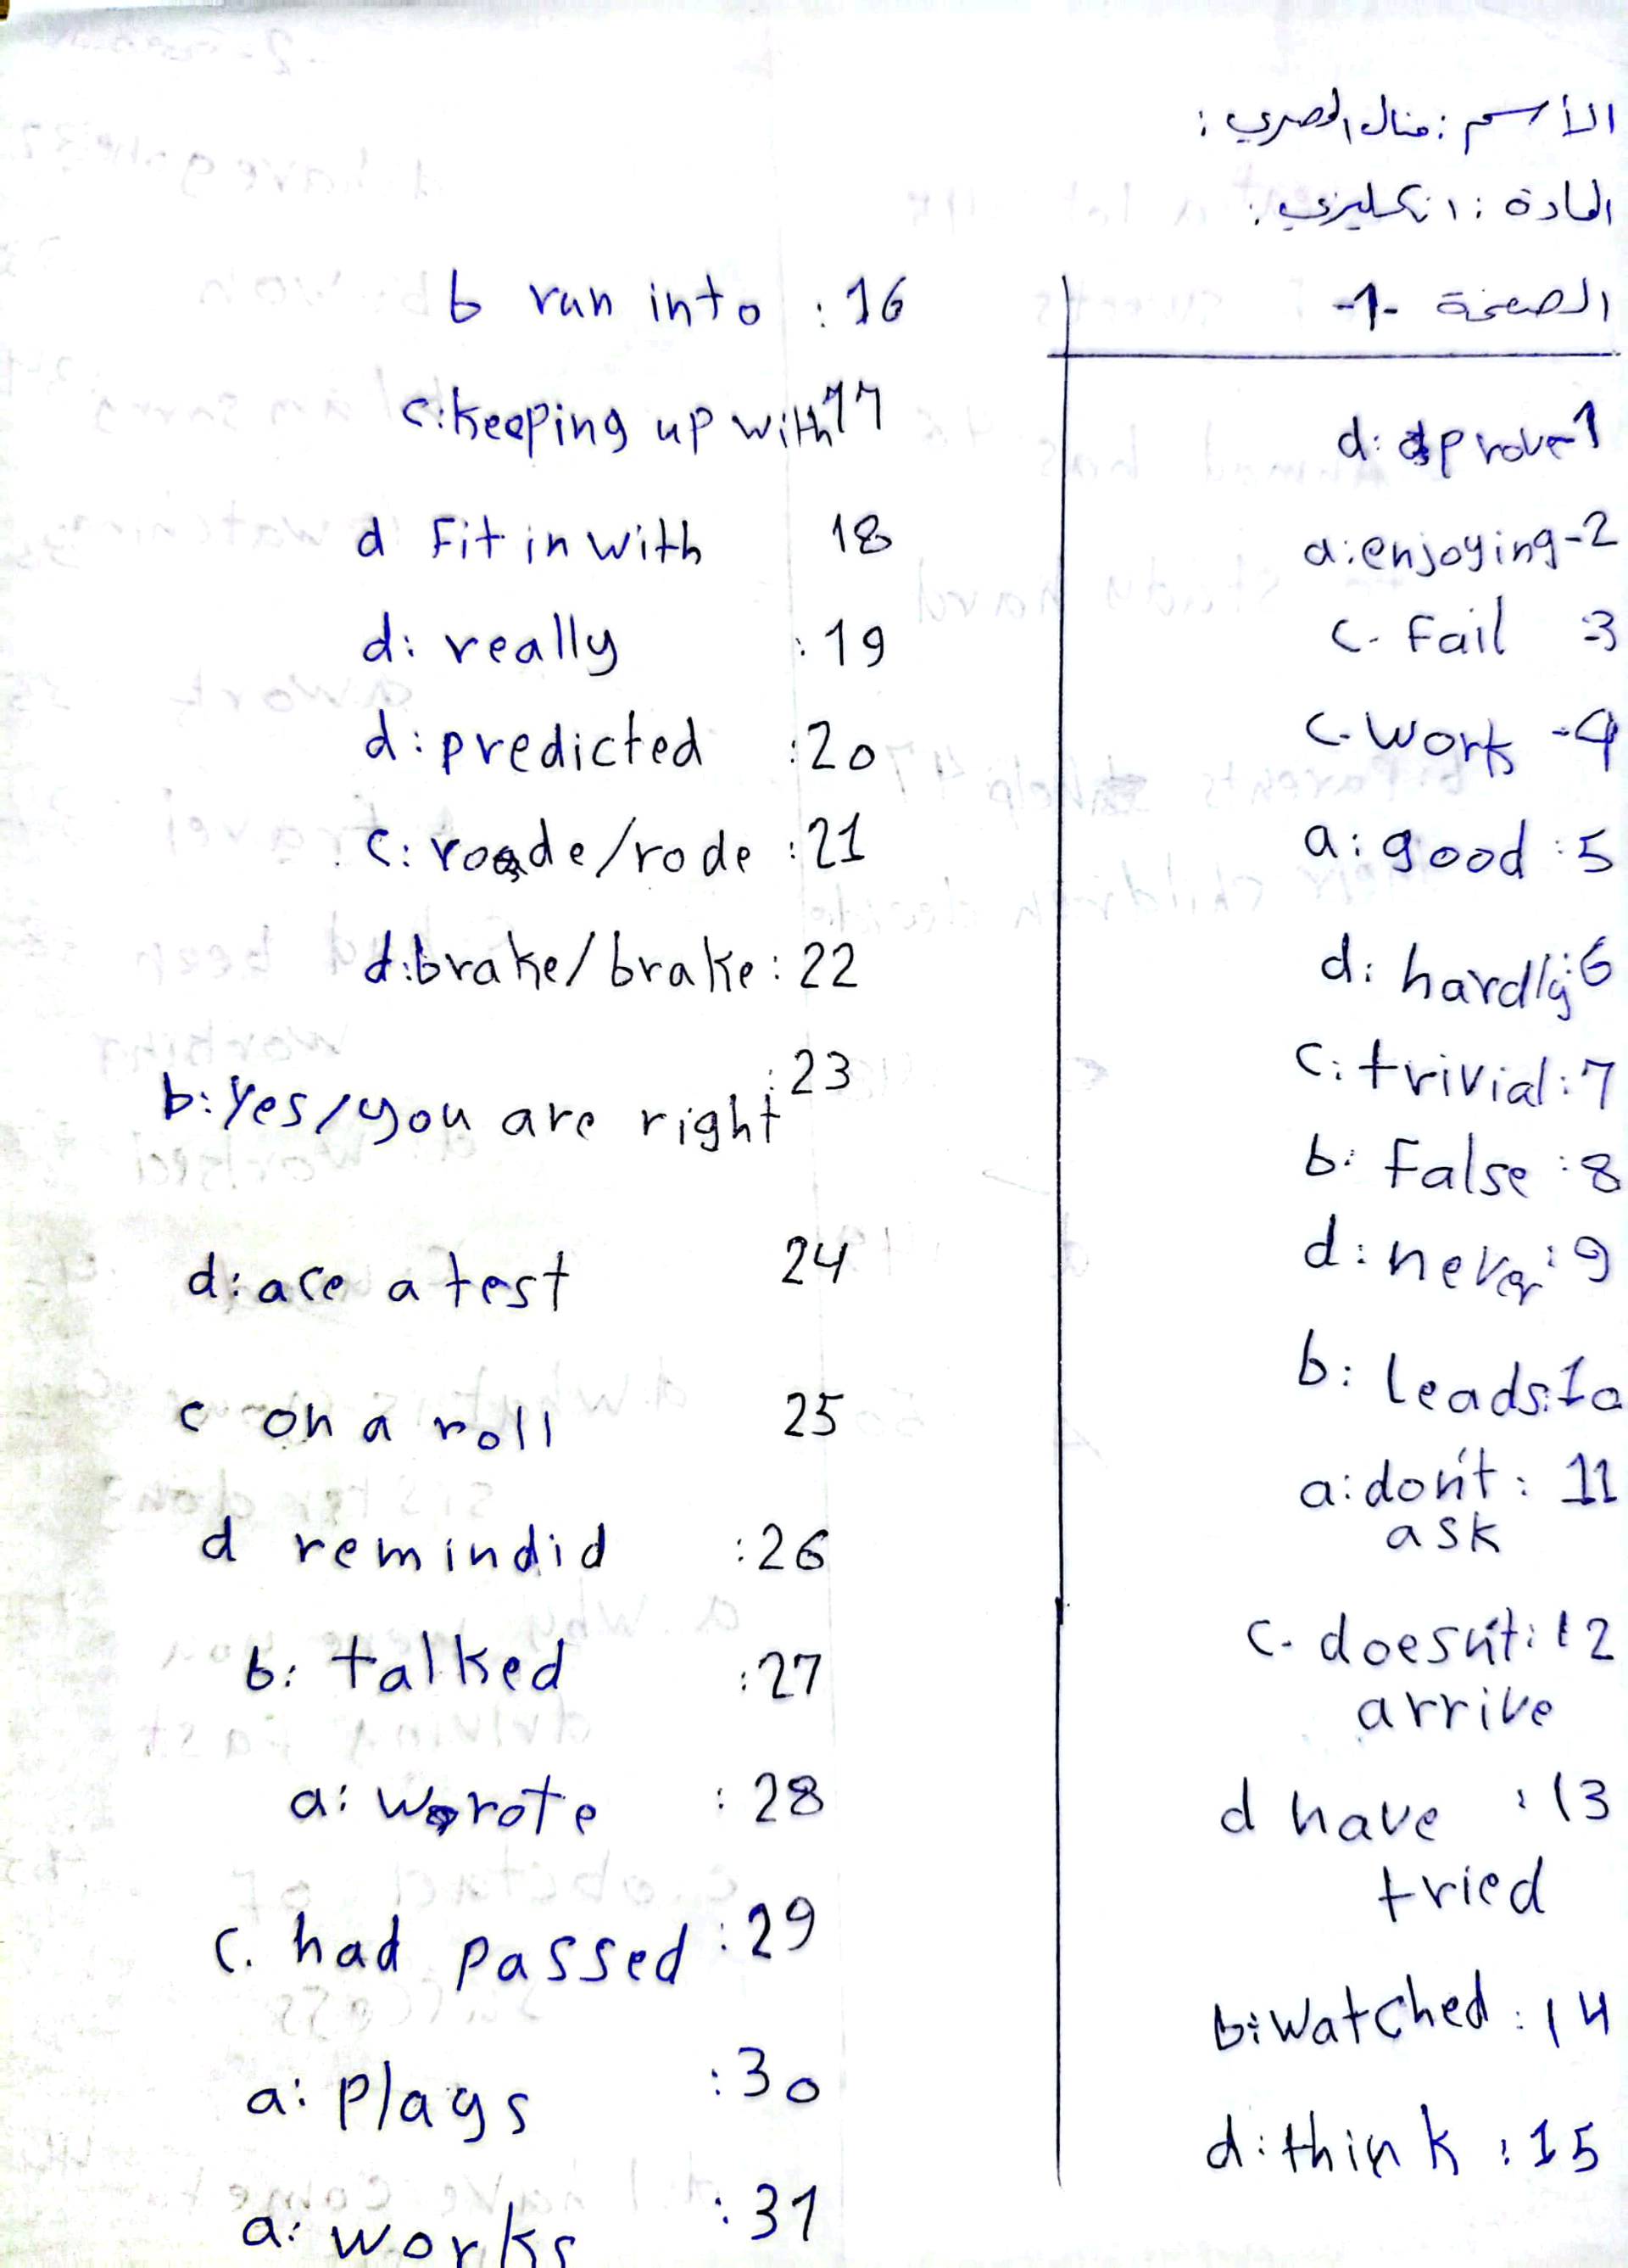 الأسم : منال المصري :
المادة : انكليزي :
الصفحة -1-
d: prove-1
a: enjoying-2
c- Fail -3
c- Work -4
a: good :5
d: hardly:6
c: trivial:7
b: False :8
d: never:9
b: leads:10
a: don't : 11
ask
c- doesn't: 12
arrive
d have : 13
tried
b: watched : 14
d: think : 15
b run into : 16
c: keeping up with 17
d Fit in with 18
d: really :19
d: predicted :20
c: rode/rode :21
d: brake/brake : 22
b: Yes/you are right :23
d: ace a test 24
c on a roll 25
d remindid :26
b: talked :27
a: wrote : 28
c. had passed :29
a: Plays :30
a: works :31